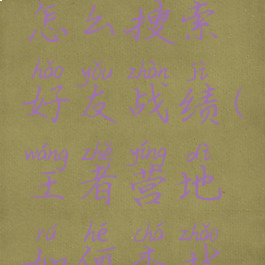 怎么搜索
hǎo yǒu zhàn jì
好友战绩(
wáng zhě yíng dì
王者营地
rú hé chá zhǎo